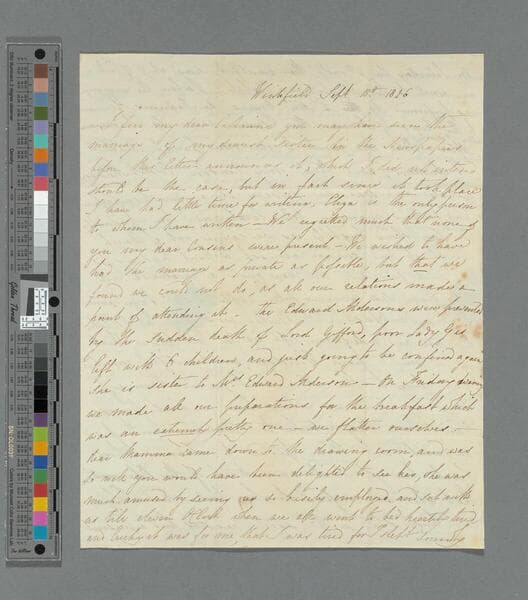 Sept 10th 1826
I fear my dear Catherine you may have seen the
marriage of my dearest Sister in the Newspapers
before this letter announces it, which I did not intend
should be the case, but in fact since it took place
I have had little time for writing, Eliza is the only person
to whom I have written - We regretted much that none of
you my dear Cousins were present - We wished to have
had the marriage as private as possible, but that we
found we could not do, as all our relations made a
point of attending it. The Edward Andersons were prevented
by the sudden death of Lord Gifford, poor Lady G is
left with 6 children, and just going to be confined again
she is sister to Mrs Edward Anderson - On Friday evening
we made all our preparations for the breakfast which
was an extremely pretty one - we flatter ourselves -
dear Mamma came down to the drawing room, and was
so well you would have been delighted to see her, she was
much amused by seeing us so busily employed, and sat with
us till eleven O'Clock when we all went to bed heartily tired
and lucky it was for me, that I was tired for I slept soundly